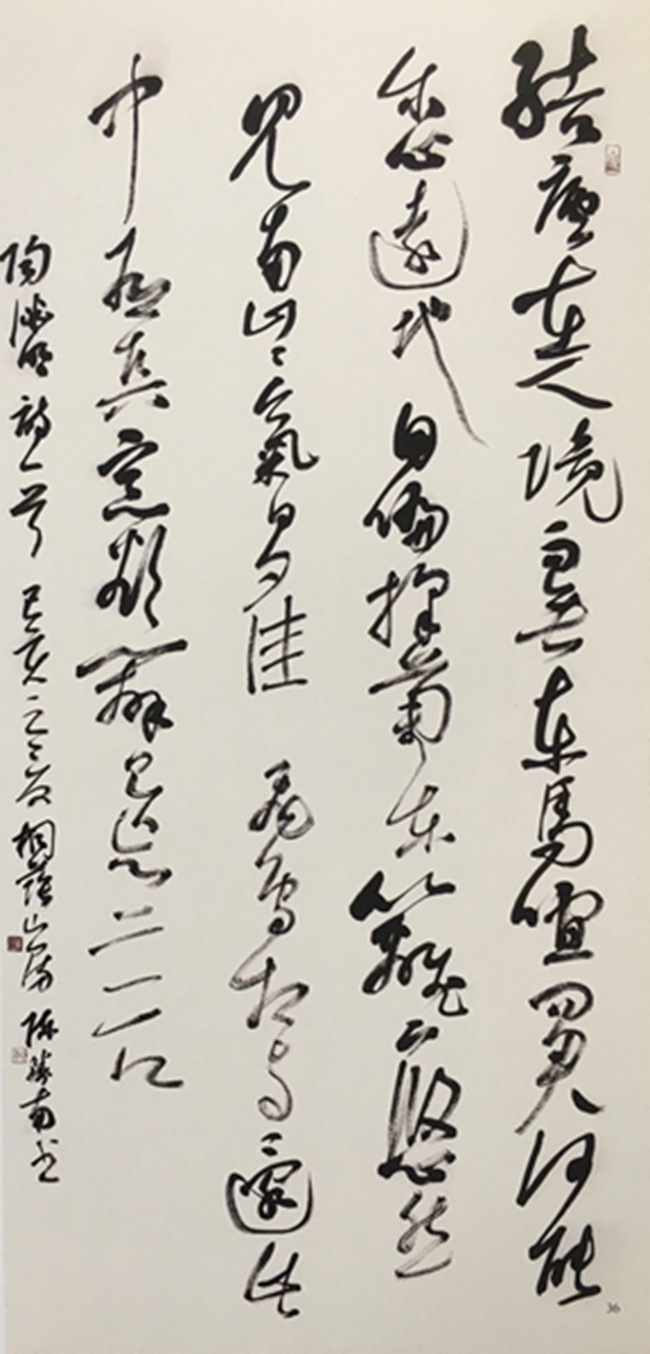 結廬在人境而無車馬喧問君何能
尔心遠地自偏採菊東籬下悠然
見南山々氣日夕佳飛鳥相與還此
中有真意欲辯已忘言
陶淵明詩一首己亥桐蔭山房陳勝南書
36